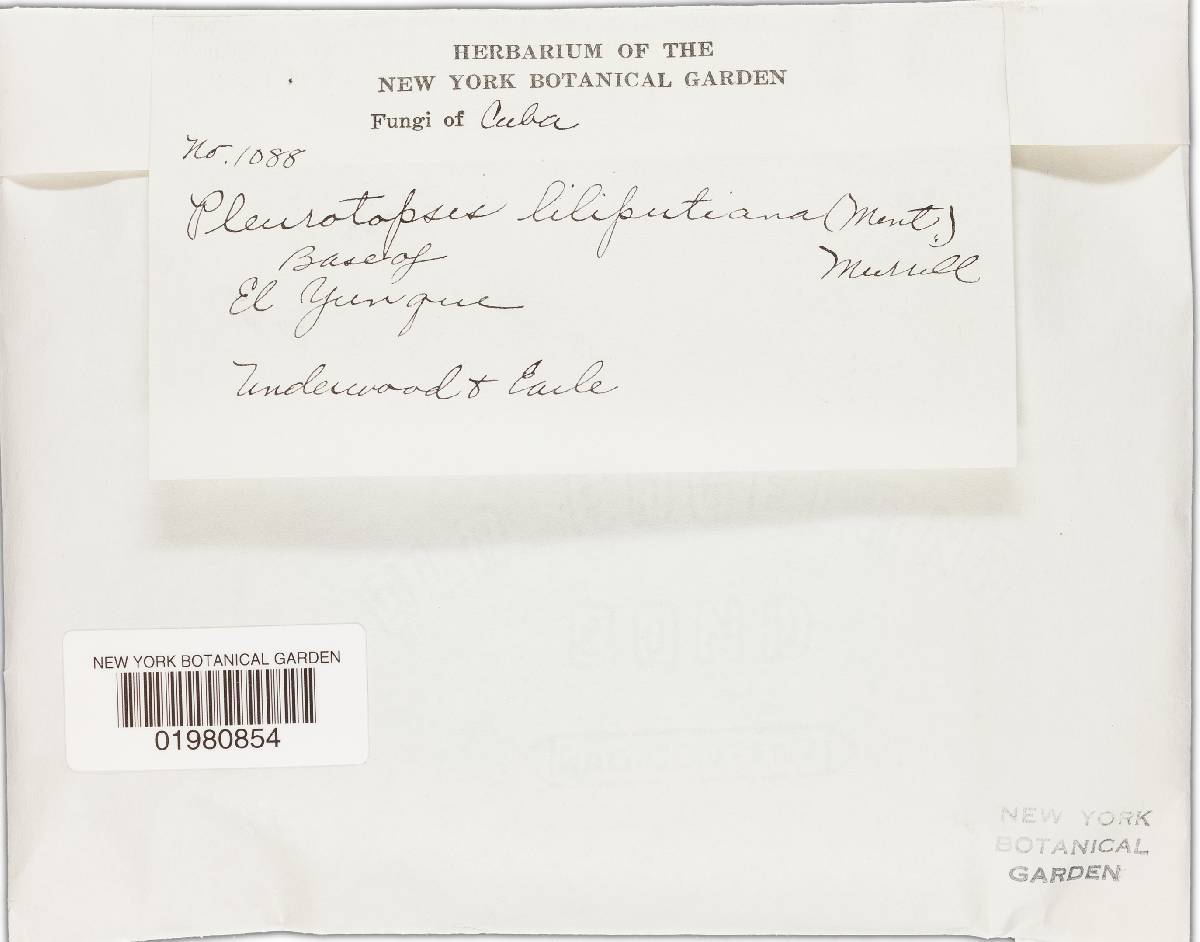 HERBARIUM OF THE
NEW YORK BOTANICAL GARDEN
Fungi of Cuba
No. 1088
Pleurotopsis liliputiana (Mont.)
Murrill
Base of
El Yunque
Underwood & Earle
NEW YORK BOTANICAL GARDEN
01980854
NEW YORK
BOTANICAL
GARDEN